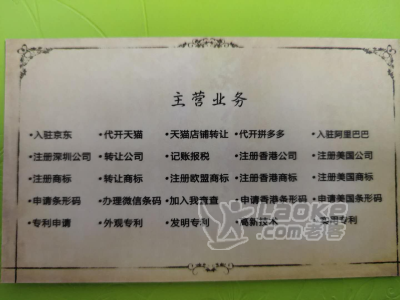 主营业务
•入驻京东 •代开天猫 •天猫店铺转让 •代开拼多多 •入驻阿里巴巴
•注册深圳公司 •转让公司 •记账报税 •注册香港公司 •注册美国公司
•注册商标 •转让商标 •注册欧盟商标 •注册香港商标 •注册美国商标
•申请条形码 •办理微信条码 •加入我查查 •申请香港条形码 •申请美国条形码
•专利申请 •外观专利 •发明专利 •高新技术 专利
Laoke.com老客